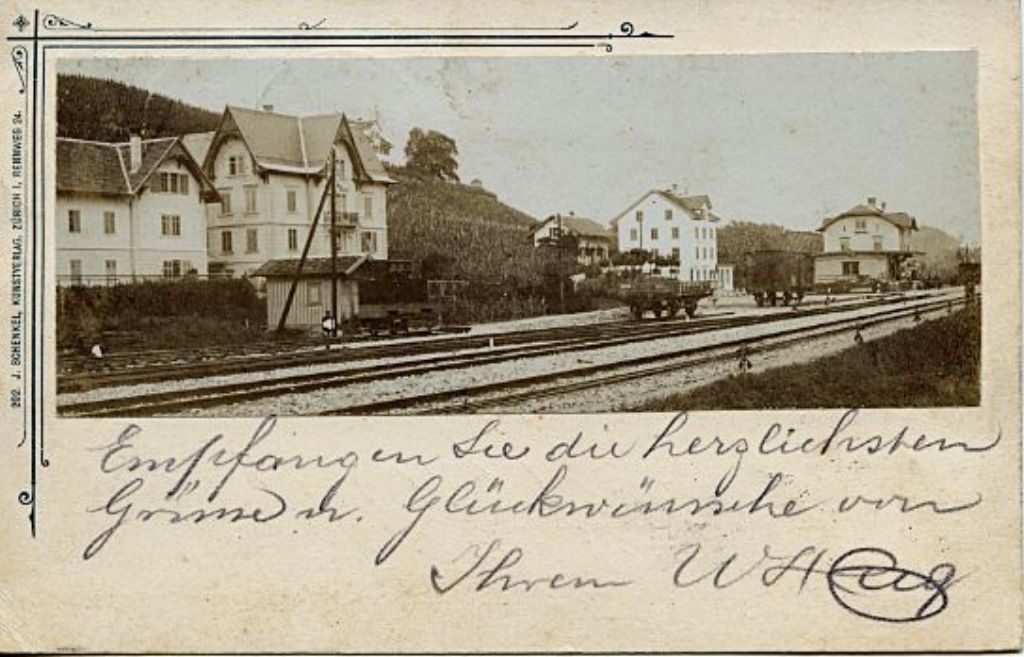 202 J. SCHENKEL, KUNSTVERLAG, ZÜRICH I, RENNWEG 24.
Empfangen Sie die herzlichsten
Grüsse u. Glückwünsche von
Ihrem W Hug